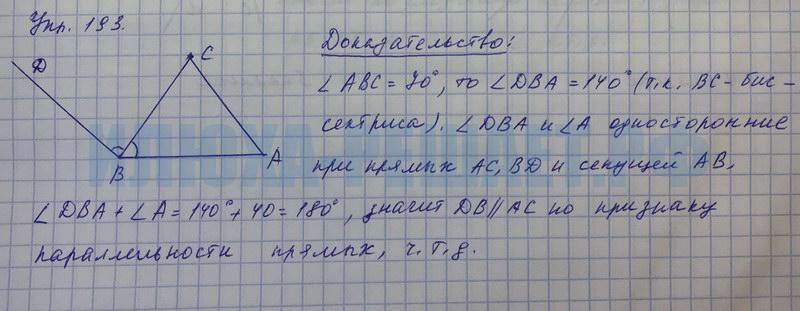 Упр. 193.
Доказательство:
D
C
A
B
∠ABC = 70°, то ∠DBA = 140° (т.к. BC - бис-
сектриса). ∠DBA и ∠A односторонние
при прямых AC, BD и секущей AB,
∠DBA + ∠A = 140° + 40 = 180°, значит DB∥AC по признаку
параллельности прямых, ч.т.д.